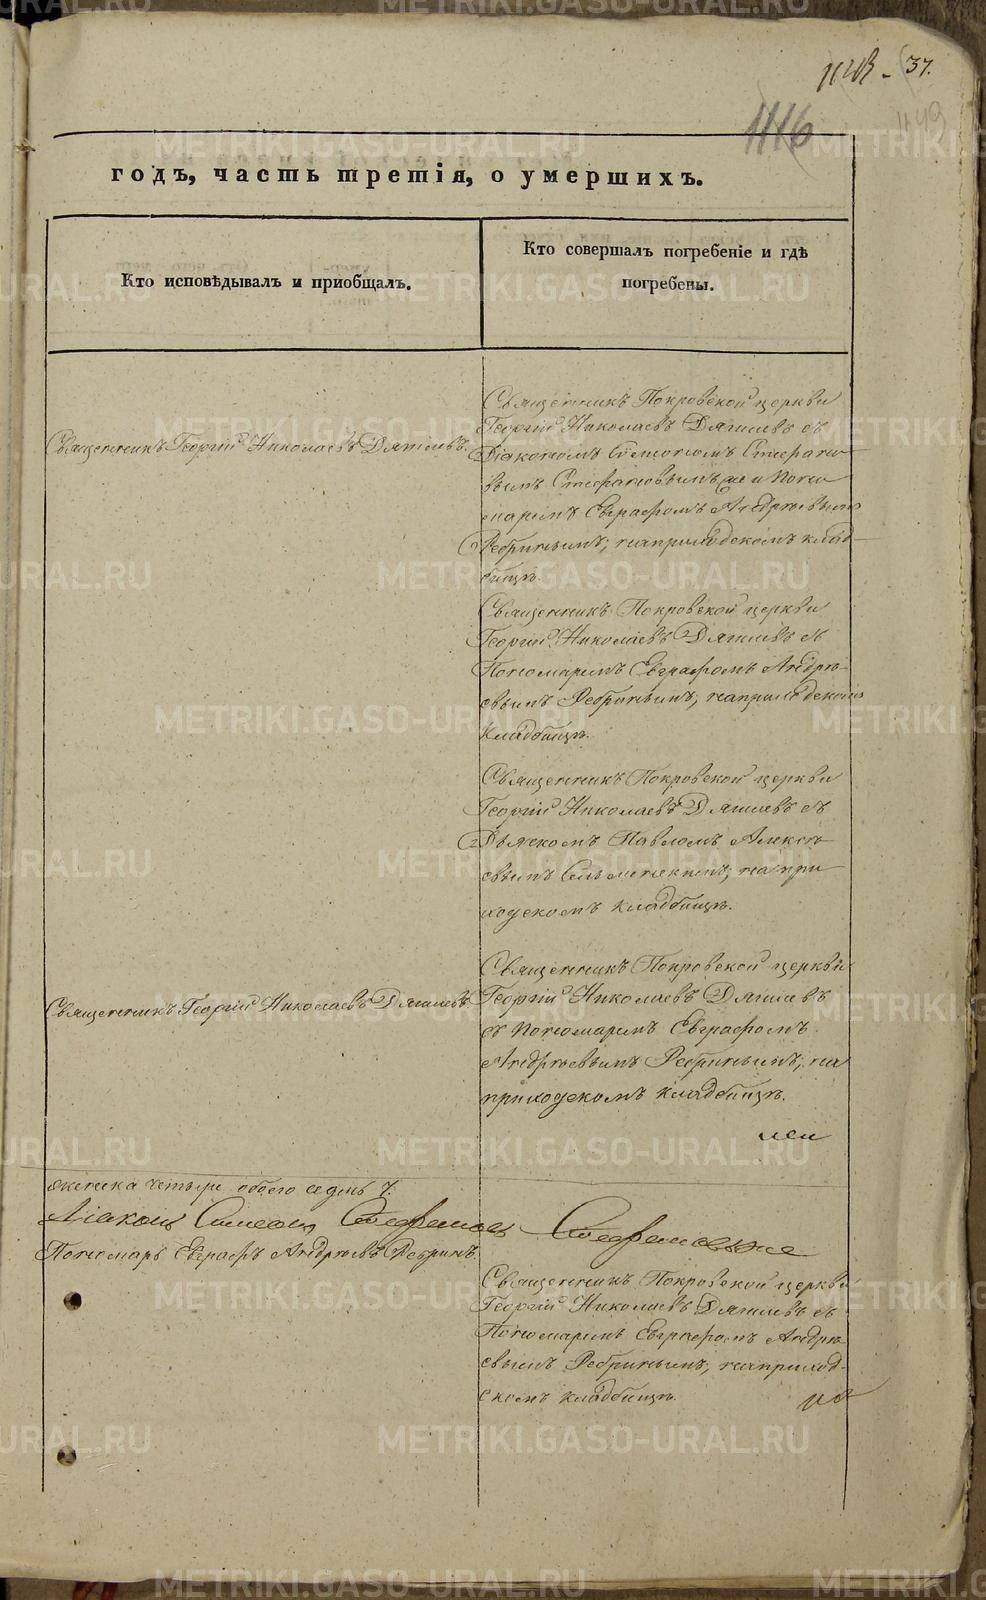 37.
1116
1149
годъ, часть третія, о умершихъ.
Кто исповѣдывалъ и приобщалъ.
Кто совершалъ погребеніе и гдѣ
погребены.
Священникъ Георгій Николаевъ Дягилевъ.
Священникъ Покровской церкви
Георгій Николаевъ Дягилевъ съ
Діакономъ Симеономъ Стефано
вымъ Стефановымъ же и Поно
маремъ Евграфомъ Андрѣевымъ
Ребринымъ; на приходскомъ клад
бищѣ.
Священникъ Покровской церкви
Георгій Николаевъ Дягилевъ съ
Пономаремъ Евграфомъ Андрѣ
евымъ Ребринымъ; на приходскомъ
кладбищѣ.
Священникъ Покровской церкви
Георгій Николаевъ Дягилевъ съ
Дьячкомъ Павломъ Алексѣ
евымъ на при
ходскомъ кладбищѣ.
Священникъ Георгій Николаевъ Дягилевъ
Священникъ Покровской церкви
Георгій Николаевъ Дягилевъ
съ Пономаремъ Евграфомъ
Андрѣевымъ Ребринымъ; на
приходскомъ кладбищѣ.
женска четыре обоего седмь 7.
Діаконъ Симеонъ Стефановъ Стефановъ же
Пономарь Евграфъ Андрѣевъ Ребринъ
Священникъ Покровской церкви
Георгій Николаевъ Дягилевъ съ
Пономаремъ Евграфомъ Андрѣ
евымъ Ребринымъ; на приход-
скомъ кладбищѣ.
METRIKI.GASO-URAL.RU